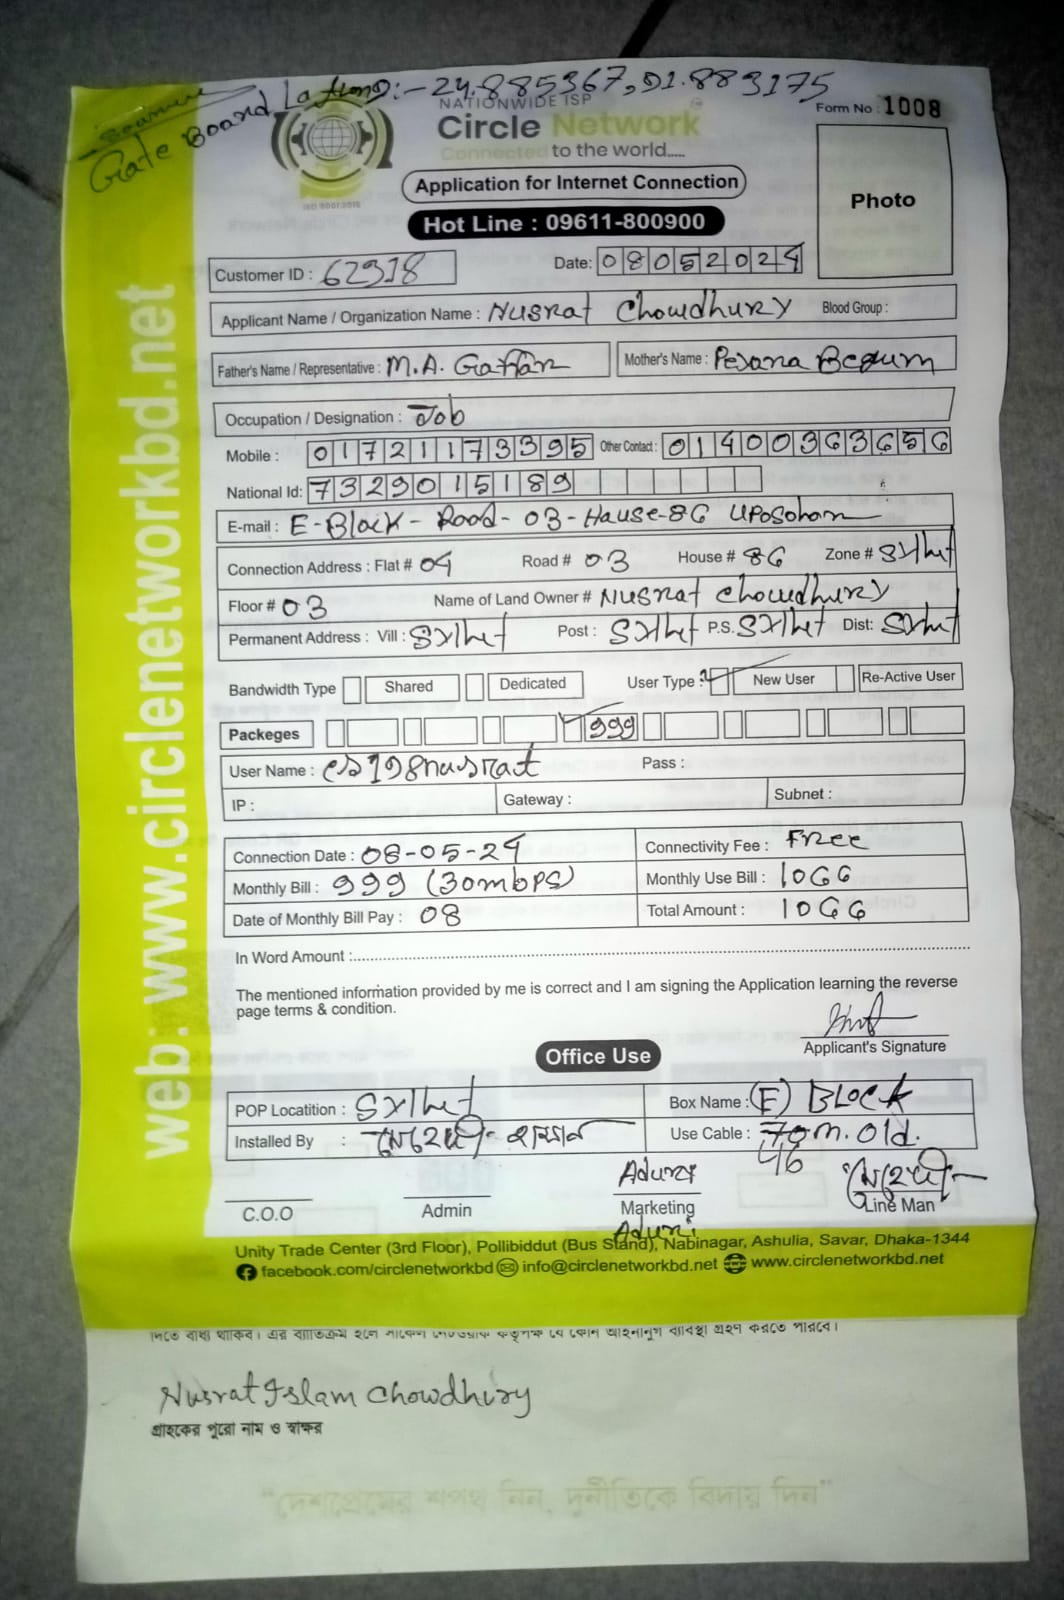 Gate Board Lattend:-24.885367,91.883175
NATIONWIDE ISP
Form No : 1008
Circle Network
Connected to the world.....
ISO 9001:2015
Application for Internet Connection
Photo
Hot Line : 09611-800900
Customer ID : 62318
Date: 08052024
Applicant Name / Organization Name : Nusrat Chowdhury Blood Group :
Father's Name / Representative : M.A. Gaffar Mother's Name : Pesana Begum
Occupation / Designation : Job
Mobile : 01721173395 Other Contact : 01400363656
National Id: 7329015189
E-mail : E-Block - Road - 03 - Hause - 86 Uposoham
Connection Address : Flat # 04 Road # 03 House # 86 Zone # Sylhet
Floor # 03 Name of Land Owner # Nusrat Chowdhury
Permanent Address : Vill : Sylhet Post : Sylhet P.S. Sylhet Dist: Sylhet
Bandwidth Type Shared Dedicated User Type : New User Re-Active User
Packeges 999
User Name : cs198nusrat Pass :
IP : Gateway : Subnet :
Connection Date : 08-05-24 Connectivity Fee : Free
Monthly Bill : 999 (30mbps) Monthly Use Bill : 1066
Date of Monthly Bill Pay : 08 Total Amount : 1066
In Word Amount :
The mentioned information provided by me is correct and I am signing the Application learning the reverse
page terms & condition.
Applicant's Signature
Office Use
POP Locatition : Sylhet Box Name : (E) BLOCK
Installed By : মেহেদী হাসান Use Cable : 70m. Old.
46
C.O.O Admin Marketing Line Man
মেহেদী
Unity Trade Center (3rd Floor), Pollibiddut (Bus Stand), Nabinagar, Ashulia, Savar, Dhaka-1344
facebook.com/circlenetworkbd info@circlenetworkbd.net www.circlenetworkbd.net
web: www.circlenetworkbd.net
Nusrat Islam Chowdhury
গ্রাহকের পুরো নাম ও স্বাক্ষর
"দেশপ্রেমের শপথ নিন, দুর্নীতিকে বিদায় দিন"